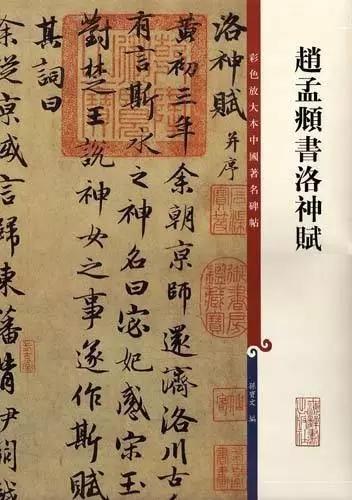 趙孟頫書洛神賦
彩色放大本中國著名碑帖
孫寶文 編
洛神賦 并序
黃初三年余朝京師還濟洛川古
有言斯水之神名曰宓妃感宋玉
對楚王說神女之事遂作斯賦
其詞曰
余從京域言歸東藩背伊闕